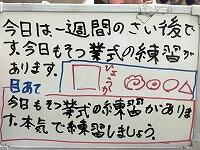 今日は一週間のさい後で
す。今日もそつ業式の練習が
あります。
ひょうか
目あて
今日もそつ業式の練習がありま
す。本気で練習しましょう。